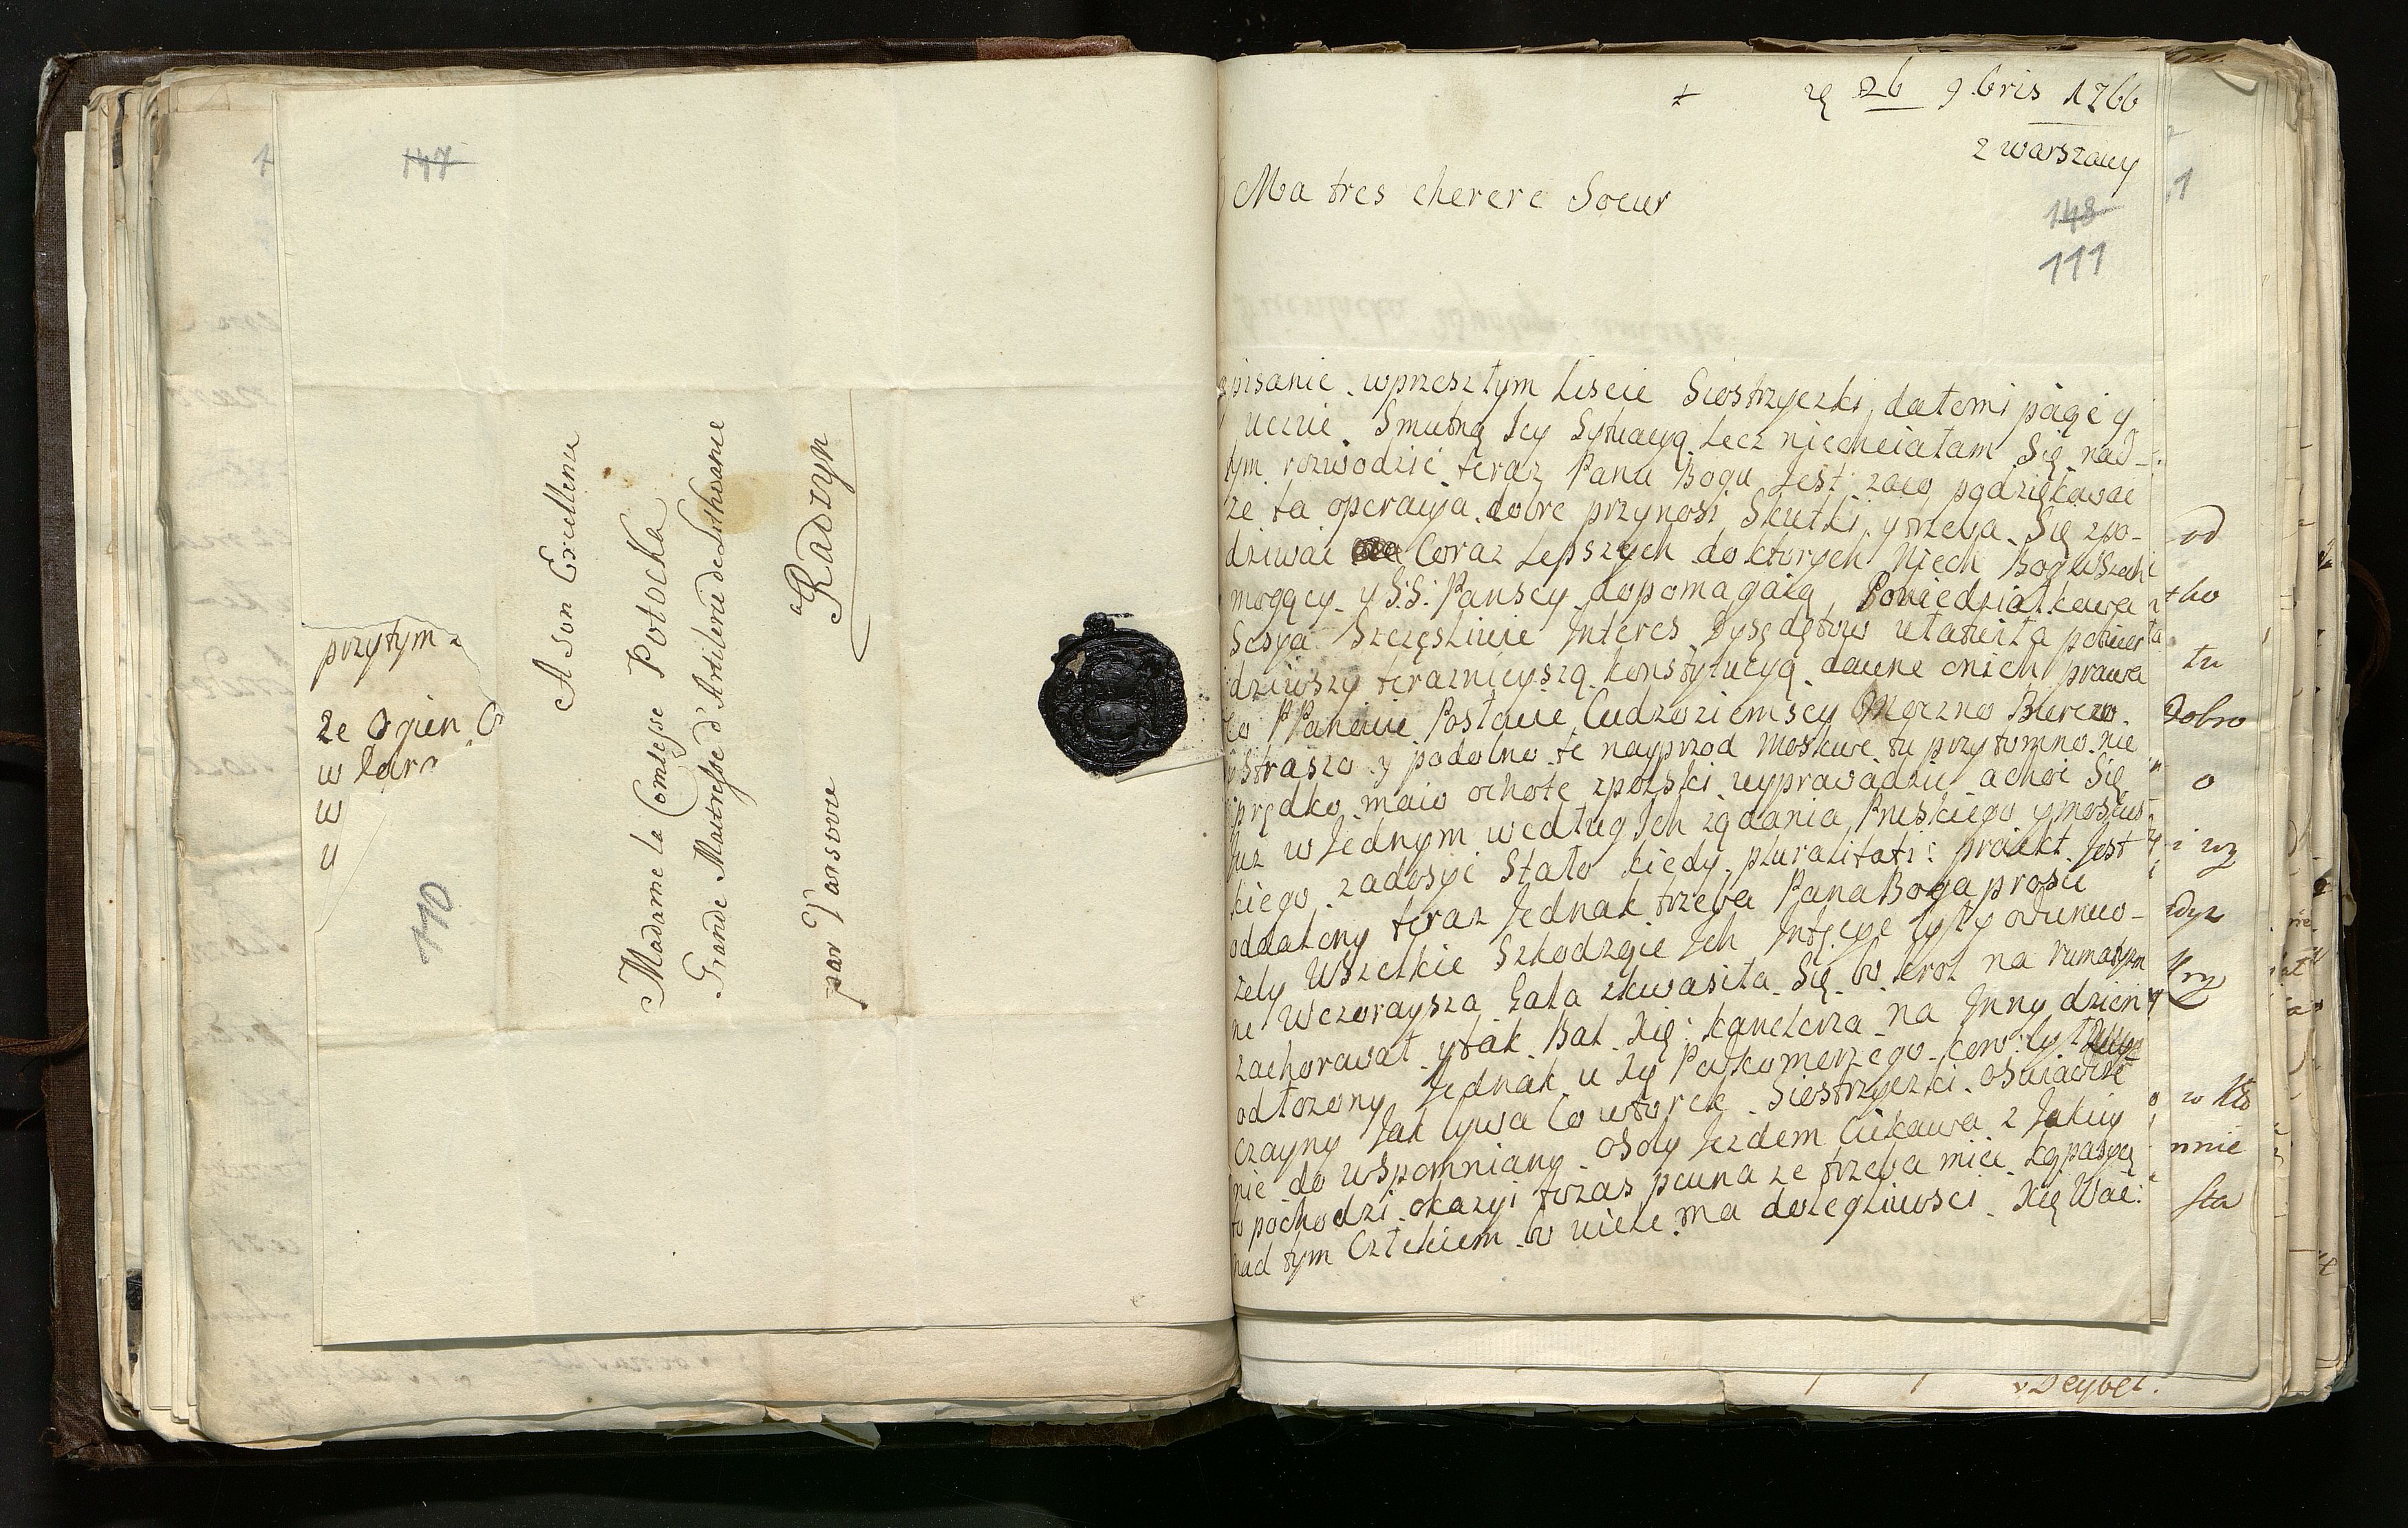 147
A Son Excellence
Madame la Comtesse Potocka
Grande Maitresse d'Artilerie de Lithvanie
par Varsovie
a Radzyn
przytym
ze Ogien
w
w
u
110
26 9bris 1766
z warszawy
Ma tres cherere Soeur
148
111
pisanie wprzeszłym Liscie Siostrzyczki datemi
uczuc Smutną Jey Sytuacyą Lecz niechciałam Się nad
tym rozwodzić teraz Panu Bogu Jest zaco podziękować
że ta operacya dobre przynosi Skutki y trzeba Się spo-
dziwać Coraz Lepszych do ktorych Niech Bog wszech
mogący y S.S: Panscy dopomagaią Poniedziałkowa
Sesya Szczęsliwie Interes Dysędętow ułatwiła potwier
dziwszy teraznieyszą konstytucyą dawne onich prawa
Co PPanowie Posłowie Cudzoziemscy Mocno Bierzo
Straszo y podobno te nayprzod Moskwe tu przytomno nie
prędko maio ochote zpolski wyprowadzic achoc Się
Juz w Jednym według Jch żądania Pruskiego y moskws
kiego zadosyc Stało kiedy pluralitatis proiekt Jest
oddalony teraz Jednak trzeba Pana Boga prosic
zeby Wszelkie Szkodzące Jch Intęcye były odwruco-
ne Wczoraysza Gala zkwasiła Się Bo krol na rumatyzm
zachorował y tak Bal Xię: kanclerza na Jnny dzien
odłozony Jednak u Xię Podkomorzego był
czayny Jak bywa Co wtorek Siostrzyczki Oswiadcze
nie do wspomniany Osoby Jezdem Ciekawa z Jakiey
to pochodzi okazyi twzas pewna ze trzeba miec kąpasyą
nad tym Człekiem Bo wiele ma dolegliwosci Xię Woie:
od
tu
Dobro
o
i wz
w
mnie
sta
Deybel.